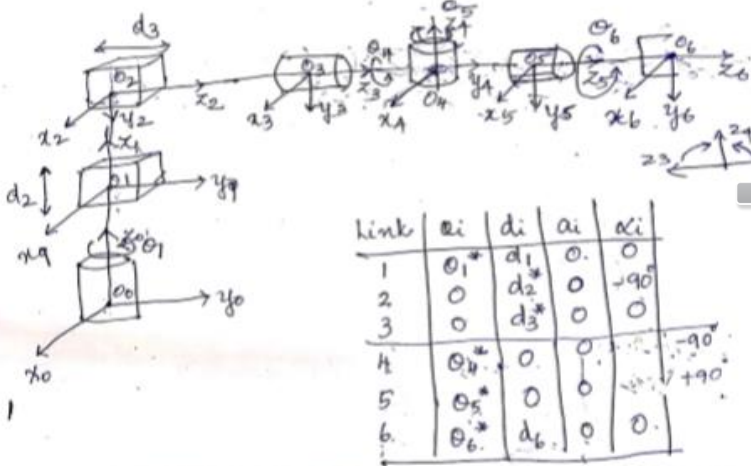 d3
θ5
z4
O2
z2
x2
y2
O3
θ4
z3
x3
y3
O4
x4
y4
O5
x5
y5
θ6
z5
O6
z6
x6
y6
z1
d2
O1
y1
x1
z0 θ1
O0
y0
x0
z3
Link θi di ai αi
1 θ1* d1 0 0
2 0 d2* 0 -90°
3 0 d3* 0 0
4 θ4* 0 0 -90°
5 θ5* 0 0 +90°
6 θ6* d6 0 0